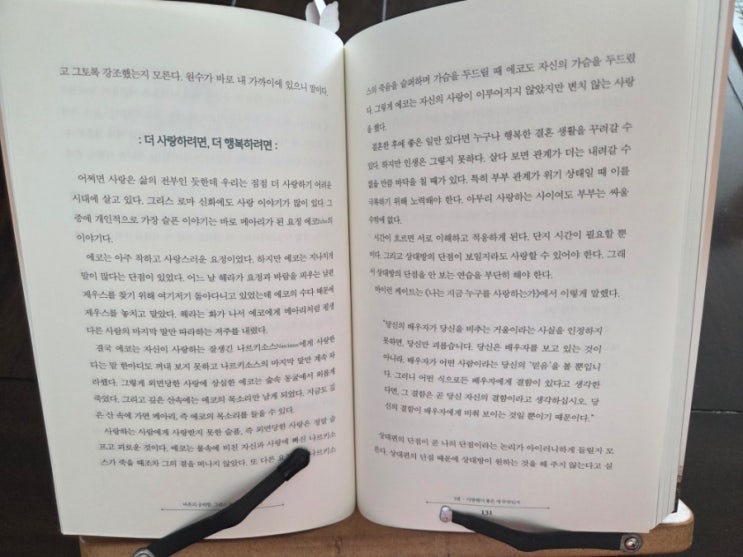 고 그토록 강조했는지 모른다. 원수가 바로 내 가까이에 있으니 말이다.
: 더 사랑하려면, 더 행복하려면 :
어쩌면 사랑은 삶의 전부인 듯한데 우리는 점점 더 사랑하기 어려운
시대에 살고 있다. 그리스 로마 신화에도 사랑 이야기가 많이 있다. 그
중에 개인적으로 가장 슬픈 이야기는 바로 메아리가 된 요정 에코의
이야기다.
에코는 아주 착하고 사랑스러운 요정이었다. 하지만 에코는 지나치게
말이 많다는 단점이 있었다. 어느 날 헤라가 요정과 바람을 피우는 남편
제우스를 찾기 위해 여기저기 돌아다니고 있었는데 에코의 수다 때문에
제우스를 놓치고 말았다. 헤라는 화가 나서 에코에게 메아리처럼 평생
다른 사람의 마지막 말만 따라하는 저주를 내렸다.
결국 에코는 자신이 사랑하는 잘생긴 나르키소스Narcissus에게 사랑한
다는 말 한마디도 꺼내 보지 못하고 나르키소스의 마지막 말만 계속 따
라했다. 그렇게 외면당한 사랑에 상심한 에코는 숲속 동굴에서 외롭게
죽었다. 그리고 깊은 산속에는 에코의 목소리만 남게 되었다. 지금도 깊
은 산 속에 가면 메아리, 즉 에코의 목소리를 들을 수 있다.
사랑하는 사람에게 사랑받지 못한 슬픔, 즉 외면당한 사랑은 정말 슬
프고 괴로운 것이다. 에코는 물속에 비친 자신과 사랑에 빠진 나르키소
스가 죽을 때조차 그의 곁을 떠나지 않았다. 또 다른 요 나르키소
스의 죽음을 슬퍼하며 가슴을 두드릴 때 에코도 자신의 가슴을 두드렸
다. 그렇게 에코는 자신의 사랑이 이루어지지 않았지만 변치 않는 사랑
을 했다.
결혼한 후에 좋은 일만 있다면 누구나 행복한 결혼 생활을 꾸려갈 수
있다. 하지만 인생은 그렇지 못하다. 살다 보면 관계가 더는 내려갈 수
없을 만큼 바닥을 칠 때가 있다. 특히 부부 관계가 위기 상태일 때 이를
극복하기 위해 노력해야 한다. 아무리 사랑하는 사이여도 부부는 싸울
수밖에 없다.
시간이 흐르면 서로 이해하고 적응하게 된다. 단지 시간이 필요할 뿐
이다. 그리고 상대방의 단점이 보일지라도 사랑할 수 있어야 한다. 그래
서 상대방의 단점을 안 보는 연습을 부단히 해야 한다.
바이런 케이트는 《나는 지금 누구를 사랑하는가》에서 이렇게 말했다.
"당신의 배우자가 당신을 비추는 거울이라는 사실을 인정하지
못하면, 당신만 괴롭습니다. 당신은 배우자를 보고 있는 것이
아니라, 배우자가 어떤 사람이라는 당신의 '믿음'을 볼 뿐입니
다. 그러니 어떤 식으로든 배우자에게 결함이 있다고 생각한
다면, 그 결함은 곧 당신 자신의 결함이라고 생각하십시오. 당
신의 결함이 배우자에게 비춰 보이는 것일 뿐이기 때문이다."
상대편의 단점이 곧 나의 단점이라는 논리가 아이러니하게 들릴지 모
른다. 상대편의 단점 때문에 상대방이 원하는 것을 해 주지 않는다고 실
131